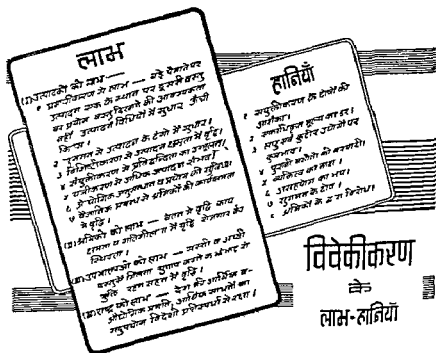 लाभ
(1) उत्पादकों को लाभ —
१ प्रमापीकरण से लाभ — बड़े पैमाने पर
उत्पादन एक के स्थान पर दूसरी वस्तु
का प्रयोग वस्तु दिखाने की आवश्यकता
नहीं उत्पादन विधियों में सुधार ऊँची
किस्म।
२ उत्पादन के ढंगों में सुधार।
३ विशिष्टीकरण से उत्पादन क्षमता में वृद्धि।
४ संयुक्तीकरण से प्रतिद्वन्दिता का उन्मूलन।
५ यन्त्रीकरण से अधिक उत्पादन संभव।
६ औद्योगिक अनुसन्धान व प्रयोग की सुविधा।
७ वैज्ञानिक प्रबन्ध से श्रमिकों की कार्यक्षमता
में वृद्धि।
(2) श्रमिकों को लाभ — वेतन में वृद्धि कार्य
क्षमता व गतिशीलता में वृद्धि रोजगार की
स्थिरता।
(3) उपभोक्ताओं को लाभ — सस्ती व अच्छी
वस्तुएँ मिलना चुनाव करने के झंझट से
मुक्ति रहन सहन में वृद्धि।
(4) राष्ट्र को लाभ — देश की आर्थिक व
औद्योगिक प्रगति, आर्थिक साधनों का
सदुपयोग विदेशी प्रतिस्पर्धा से रक्षा।
हानियाँ
१ संयुक्तीकरण के दोषों की
आशंका।
२ एकाधिकृत मूल्य का डर।
३ लघु एवं कुटीर उद्योगों पर
कुप्रभाव।
४ पुरानी मशीनों की बरबादी।
५ व्यक्तित्व का
६ का भय।
७ के दोष।
८ श्रमिकों के द्वारा विरोध।
विवेकीकरण
के
लाभ-हानियाँ